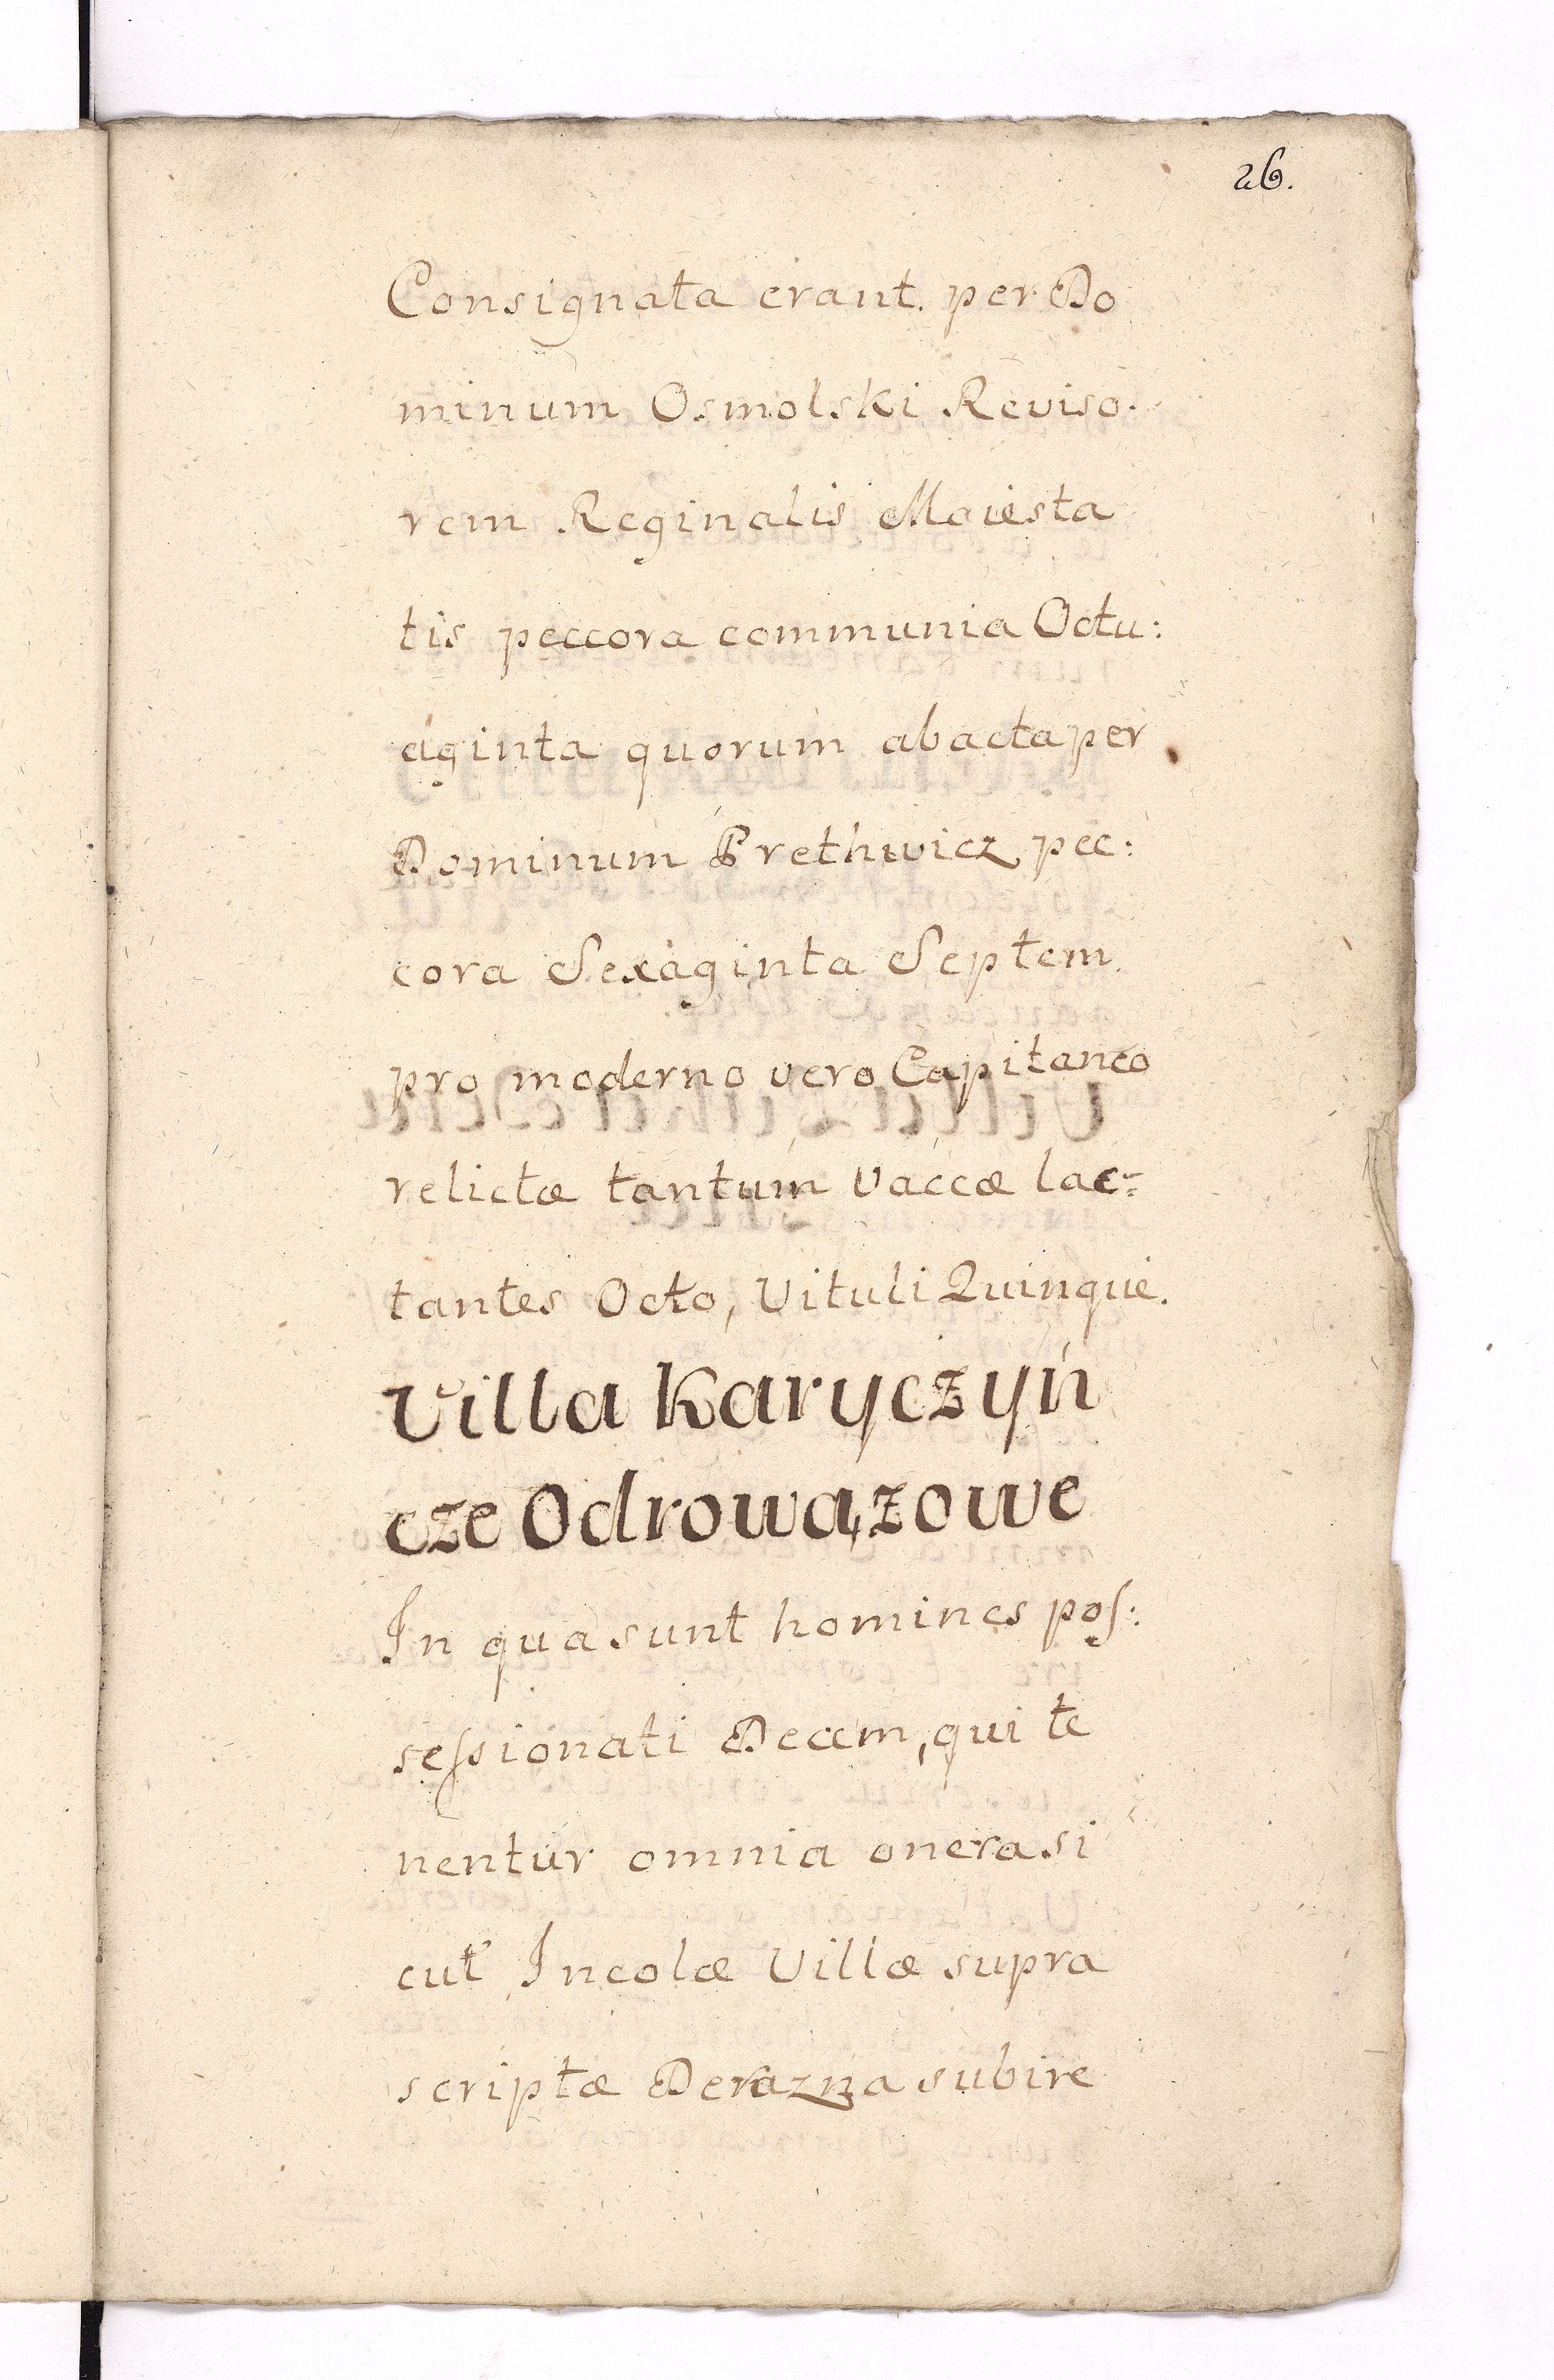 26.
Consignata erant. per Do
minum Osmolski Reviso.
rem Reginalis Maiesta
tis peccora communia Octu:
aginta quorum abacta per
Dominum Prethwicz pec:
cora Sexaginta Septem.
pro moderno vero Capitaneo
relictæ tantum Vaccæ lac:
tantes Octo, Vituli Quinque.
Villa Karyczyń
cze Odrowązowe
In qua sunt homines pos:
sessionati Decem, qui te
nentur omnia onera si
cut Incolæ Villæ supra
scriptæ Derazna subire